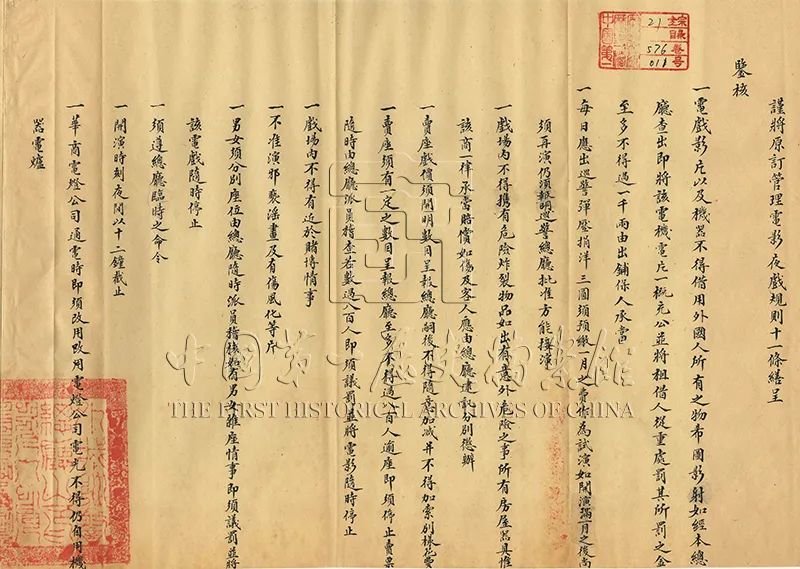 謹將原訂管理電影夜戲規則十一條繕呈
鑒核
一電戲影片以及機器不得借用外國人所有之物希圖影射如經本總
廳查出即將該電機電片一概充公並將租借人從重處罰其所罰之金
至多不得過一千兩由出鋪保人承當
一每日應出巡警彈壓捐洋三圓須預繳一月之費作為試演如開演滿一月之後尚
須再演仍須報明巡警總廳批准方能接演
一戲場內不得携有危險炸裂物品如出有意外危險之事所有房屋器具惟
該商一律承當賠償如傷及客人應由總廳逮訊分別懲辦
一賣座戲價須開明數目呈報總廳嗣後不得隨意加减并不得加索別樣花費
一賣座須有一定之數目呈報總廳至多不得過八百人適座即須停止賣票
隨時由總廳派員稽查若數過八百人即須議罰並將電影隨時停止
一戲場內不得有近於賭博情事
一不准演邪褻滛畫及有傷風化等片
一男女須分別座位由總廳隨時派員稽核如有男女雜座情事即須議罰並將
該電戲隨時停止
一須遵總廳臨時之命令
一開演時刻夜間以十二鐘截止
一華商電燈公司通電時即須改用改用電燈公司電光不得仍自用機
器電爐
全宗
目錄
卷号
21
576
011
中國第一歷史檔案館
THE FIRST HISTORICAL ARCHIVES OF CHINA